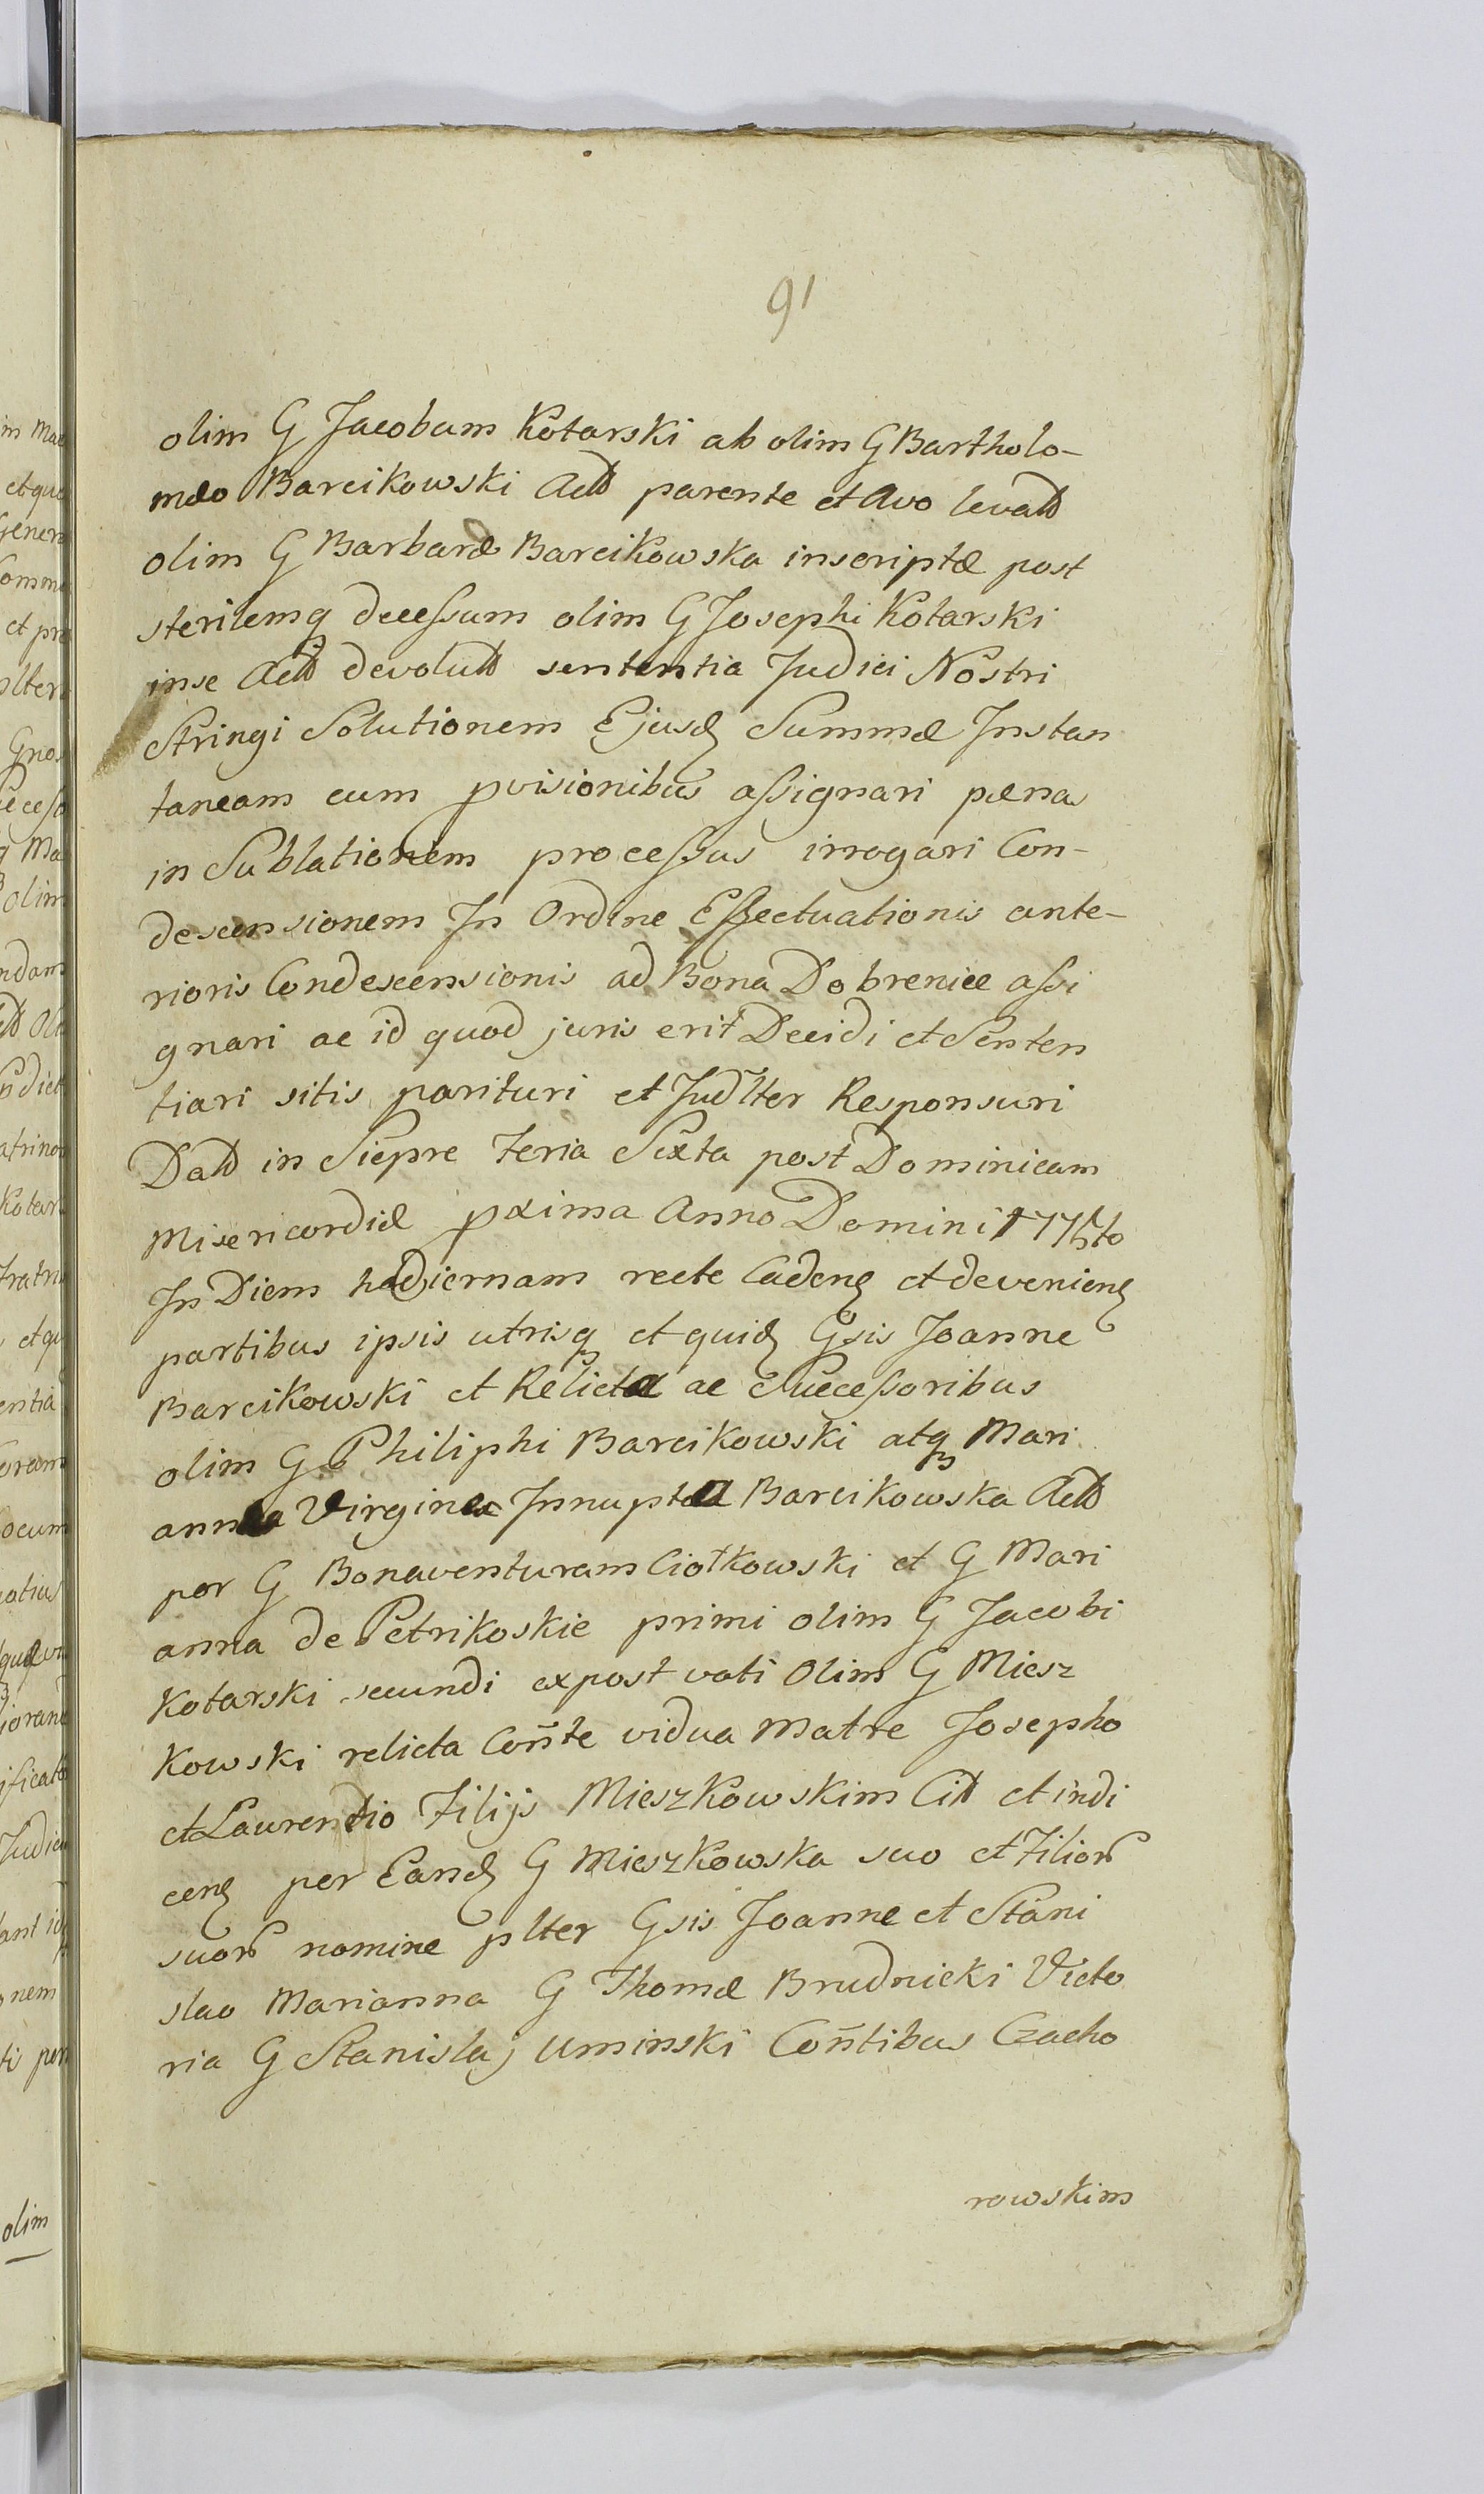 91
olim G Jacobum Kotarski ab olim G Bartholo-
mæo Barcikowski Actt parente et Avo levatt
olim G Barbaræ Barcikowska inscriptæ post
sterilemq decessum olim G Josephi Kotarski
in se Actt devolutt sententia Judici Nostri
Stringi Solutionem Ejusd Summæ Instan
taneam cum pvisionibus assignari pænas
in Sublationem processus irrogari Con-
descensionem In Ordine Effectuationis ante-
rioris Condescensionis ad Bona Dobrenice assi
gnari ac id quod juris erit Decidi et Senten
tiari sitis parituri et Judlter Responsuri
Datt in Siepre feria Sixta post Dominicam
Misericordiæ pxima Anno Domini
In Diem hodiernam recte Caden et devenien
partibus ipsis utrisq et quid Gsis Joanne
Barcikowski et Relicta ac Successoribus
olim G Philiphi Barcikowski atq Mari
anna Virgine Innupta Barcikowska Actt
per G Bonaventuram Ciotkowski et G Mari
anna de Petrikoskie primi olim G Jacobi
Kotarski secundi expost voti Olim G Miesz
kowski relicta Conte vidua Matre Josepho
et Laurentio Filijs Mieszkowskim Citt et indi
cen per Eand G Mieszkowska suo et Filior
suor nomine plter Gsis Joanne et Stani
slao Marianna G Thomæ Brudnicki Victo
ria G Stanislaj Uminski Contibus Czacho
rowskim
in Mae
et que
Gener
Comm
et pr
Gnos
olim
ndam
Kotar
et qu
entia
oram
ocum
Judici
nem
olim